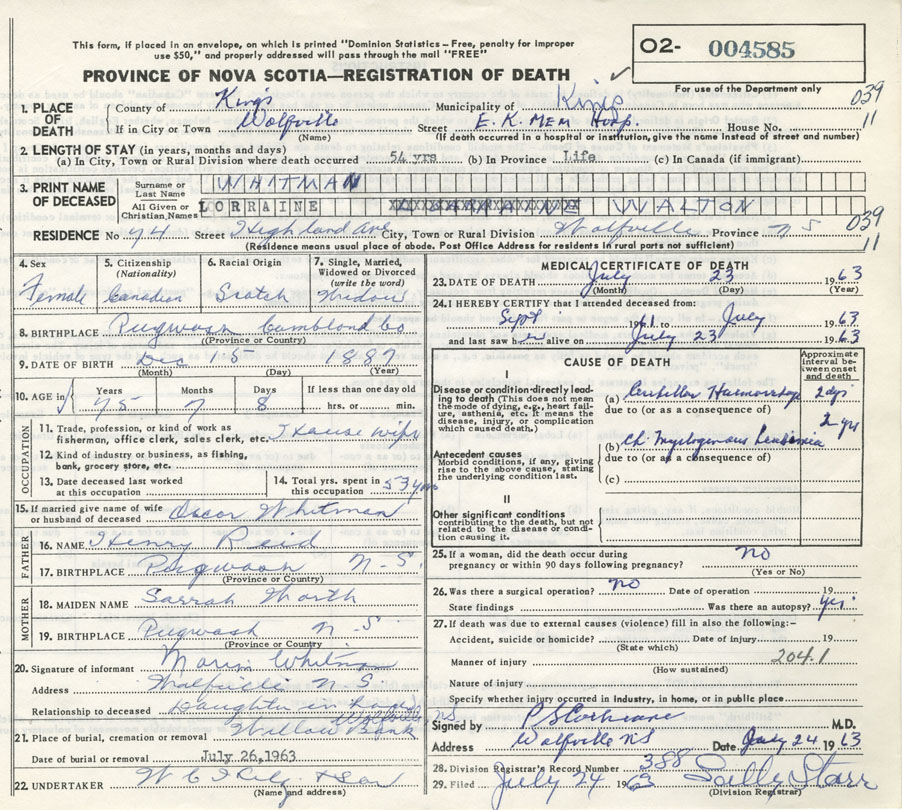 This form, if placed in an envelope, on which is printed "Dominion Statistics - Free, penalty for improper
use $50," and properly addressed will pass through the mail "FREE"
O2- 004585
PROVINCE OF NOVA SCOTIA—REGISTRATION OF DEATH
For use of the Department only
1. PLACE OF DEATH
County of Kings Municipality of Kings 039
If in City or Town Wolfville Street E. K. MEM Hosp. House No. 11
(Name) (If death occurred in a hospital or institution, give the name instead of street and number)
2. LENGTH OF STAY (in years, months and days)
(a) In City, Town or Rural Division where death occurred 54 yrs (b) In Province Life (c) In Canada (if immigrant)
3. PRINT NAME OF DECEASED
Surname or Last Name WHITMAN
All Given or Christian Names LORRAINE WALTON
RESIDENCE No 44 Street Highland Ave City, Town or Rural Division Wolfville Province N S 039
(Residence means usual place of abode. Post Office Address for residents in rural parts not sufficient) 11
4. Sex Female
5. Citizenship (Nationality) Canadian
6. Racial Origin Scotch
7. Single, Married, Widowed or Divorced (write the word) Widow
8. BIRTHPLACE Pugwash Cumbland Co
(Province or Country)
9. DATE OF BIRTH Dec 15 1887
(Month) (Day) (Year)
10. AGE in Years 75 Months 7 Days 8 If less than one day old
hrs. or min.
OCCUPATION
11. Trade, profession, or kind of work as
fisherman, office clerk, sales clerk, etc. House wife
12. Kind of industry or business, as fishing,
bank, grocery store, etc.
13. Date deceased last worked at this occupation
14. Total yrs. spent in this occupation 53 yrs
15. If married give name of wife or husband of deceased Oscar Whitman
FATHER
16. NAME Henry Reid
17. BIRTHPLACE Pugwash N-S.
(Province or Country)
MOTHER
18. MAIDEN NAME Sarrah
19. BIRTHPLACE Pugwash N-S
(Province or Country)
20. Signature of informant Whitman
Address Wolfville N.S.
Relationship to deceased Daughter in law
21. Place of burial, cremation or removal Willow Bank Wolfville NS
Date of burial or removal July 26,1963
22. UNDERTAKER
(Name and address)
MEDICAL CERTIFICATE OF DEATH
23. DATE OF DEATH July 23 1963
(Month) (Day) (Year)
24. I HEREBY CERTIFY that I attended deceased from:
Sept 1961 to July 1963
and last saw her alive on July 23 1963
CAUSE OF DEATH
Approximate interval between onset and death
I
Disease or condition directly leading to death (This does not mean the mode of dying, e.g., heart failure, asthenia, etc. It means the disease, injury, or complication which caused death.)
(a) Cerebellar Haemorrhage 2 dys
due to (or as a consequence of)
Antecedent causes
Morbid conditions, if any, giving rise to the above cause, stating the underlying condition last.
(b) Ch. Myelogenous Leukemia 2 yrs
due to (or as a consequence of)
(c)
II
Other significant conditions
contributing to the death, but not related to the disease or condition causing it.
25. If a woman, did the death occur during
pregnancy or within 90 days following pregnancy? No
(Yes or No)
26. Was there a surgical operation? no Date of operation 19
State findings Was there an autopsy? yes
27. If death was due to external causes (violence) fill in also the following:-
Accident, suicide or homicide? Date of injury 19
(State which)
Manner of injury 204.1
(How sustained)
Nature of injury
Specify whether injury occurred in industry, in home, or in public place
Signed by P S Cochrane M.D.
Address Wolfville NS Date July 24 1963
28. Division Registrar's Record Number 388
29. Filed July 24 1963 Sally Starr
(Division Registrar)